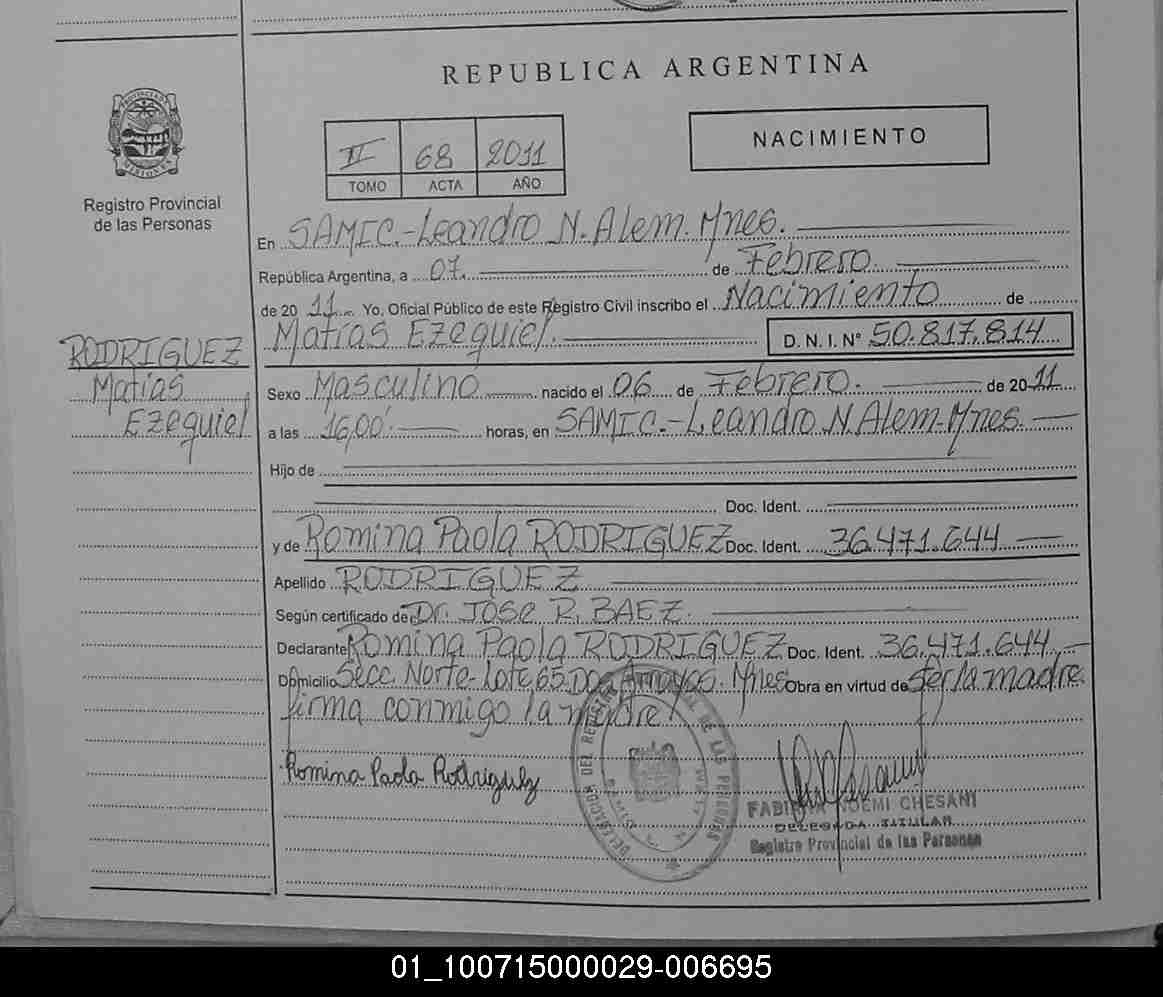 REPUBLICA ARGENTINA
PROVINCIA DE
MISIONES
Registro Provincial
de las Personas
II 68 2011
TOMO ACTA AÑO
NACIMIENTO
En SAMIC.-Leandro N. Alem. Mnes.
República Argentina, a 07. de Febrero
de 20 11 Yo, Oficial Público de este Registro Civil inscribo el Nacimiento de
Matías Ezequiel. D. N. I. N° 50.817.814
RODRIGUEZ
Matías
Ezequiel
Sexo Masculino nacido el 06 de Febrero. de 20 11
a las 16,00 horas, en SAMIC.-Leandro N. Alem-Mnes.
Hijo de
Doc. Ident.
y de Romina Paola RODRIGUEZ Doc. Ident. 36.471.644
Apellido RODRIGUEZ
Según certificado de Dr. JOSE R. BAEZ.
Declarante Romina Paola RODRIGUEZ Doc. Ident. 36.471.644
Domicilio Secc. Norte-Lote 65. Dos Arroyos. Mnes Obra en virtud de ser la madre.
firma conmigo la madre
Romina Paola Rodriguez
DELEGACION DEL REGISTRO PROVINCIAL DE LAS PERSONAS
FABIANA NOEMI CHESANI
DELEGADA TITULAR
Registro Provincial de las Personas
01_100715000029-006695